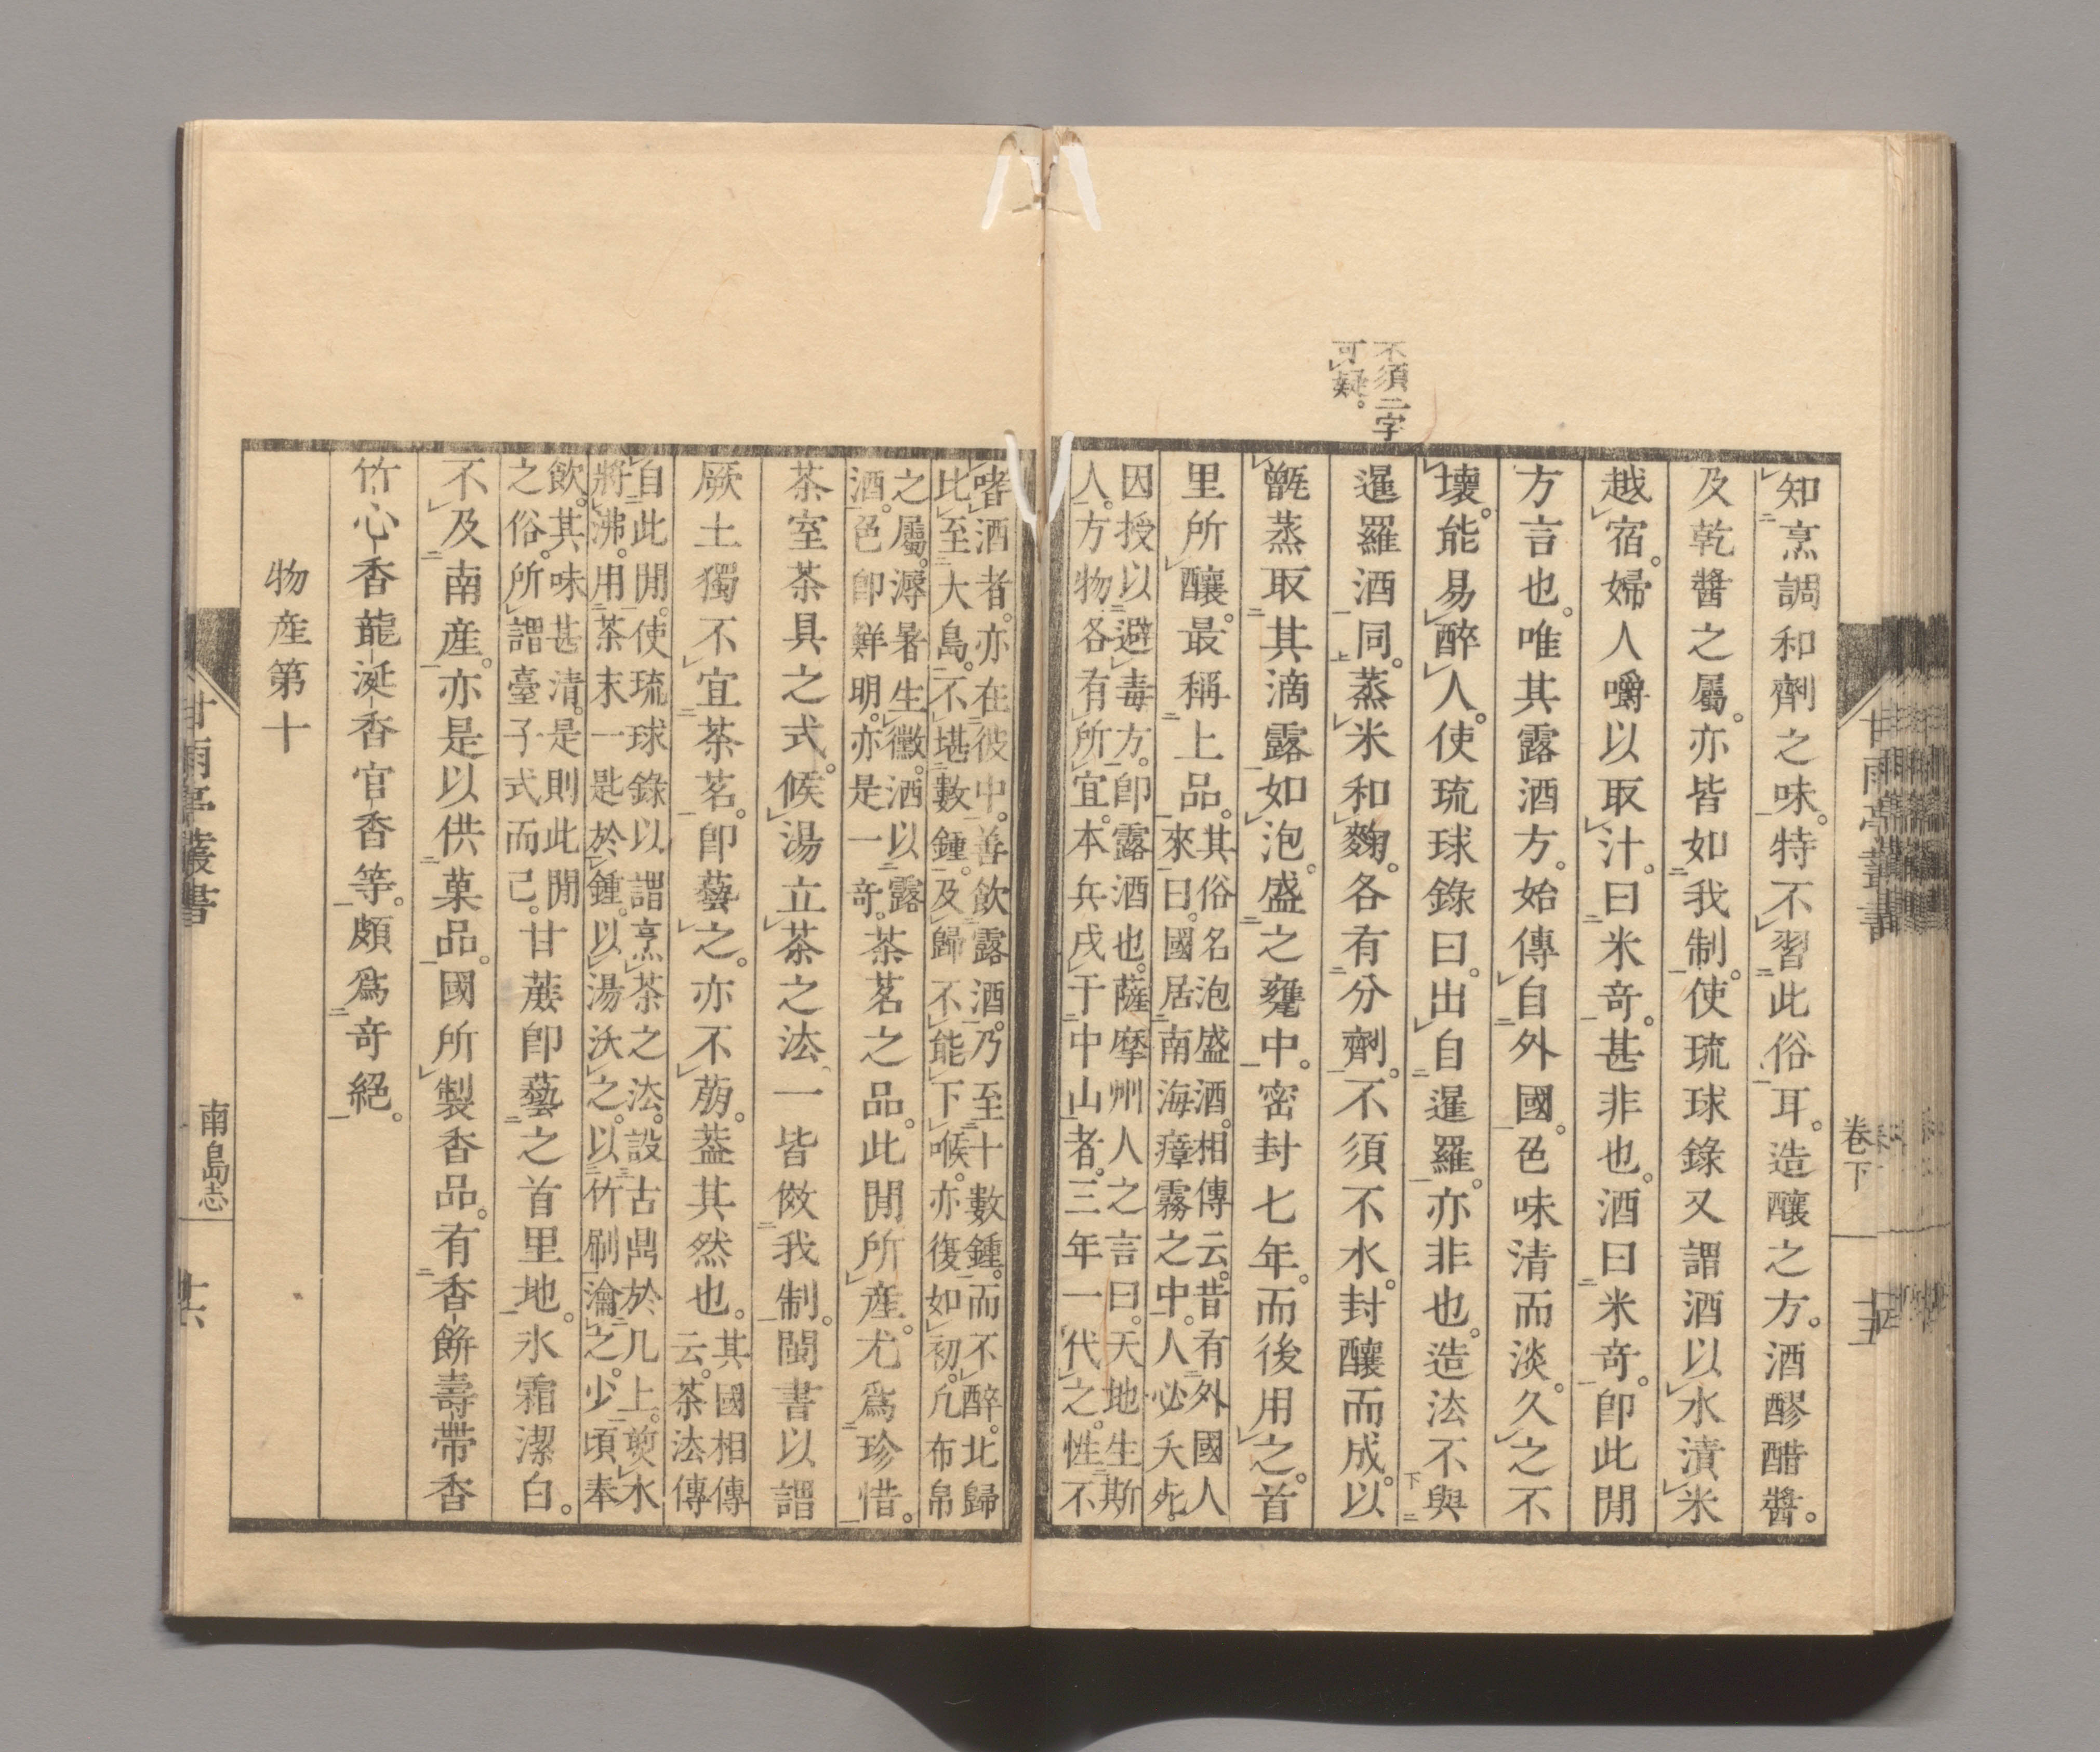 不須二字
可疑。
知烹調和劑之味。特不習此俗耳。造釀之方。酒醪醋醬。
及乾醬之屬。亦皆如我制。使琉球錄又謂酒以水漬米
越宿。婦人嚼以取汁。曰米奇。甚非也。酒曰米奇。卽此閒
方言也。唯其露酒方。始傳自外國。色味清而淡。久之不
壞。能易醉人。使琉球錄曰。出自暹羅。亦非也。造法不與
暹羅酒同。蒸米和麴。各有分劑。不須不水。封釀而成。以
甑蒸取其滴露如泡。盛之甕中。密封七年。而後用之。首
里所釀。最稱上品。
其俗名泡盛酒。相傳云。昔有外國人
來曰。國居南海瘴霧之中。人必夭死。
因授以避毒方。卽露酒也。薩摩州人之言曰。天地生斯
人。方物各有所宜。本兵戍于中山者。三年一代之。性不
嗜酒者。亦在彼中。善飲露酒。乃至十數鍾。而不醉。北歸
比至大島。不堪數鍾。及歸不能下喉。亦復如初。凡布帛
之屬。溽暑生黴。洒以露
酒。色卽鮮明。亦是一奇。
茶茗之品。此閒所產。尤爲珍惜。
茶室茶具之式。候湯立茶之法。一皆傚我制。閩書以謂
厥土獨不宜茶茗。卽藝之。亦不萠。葢其然也。
其國相傳
云。茶法傳
自此閒。使琉球錄以謂烹茶之法。設古鼎於几上。煎水
將沸。用茶末一匙於鍾。以湯沃之。以竹刷瀹之。少頃奉
飲。其味甚清。是則此閒
之俗。所謂臺子式而已。
甘蔗卽藝之首里地。氷霜潔白。
不及南產。亦是以供菓品。國所製香品。有香餅壽帶香
竹心香龍涎香官香等。頗爲奇絕。
物產第十
甘雨亭叢書
卷下
南島志